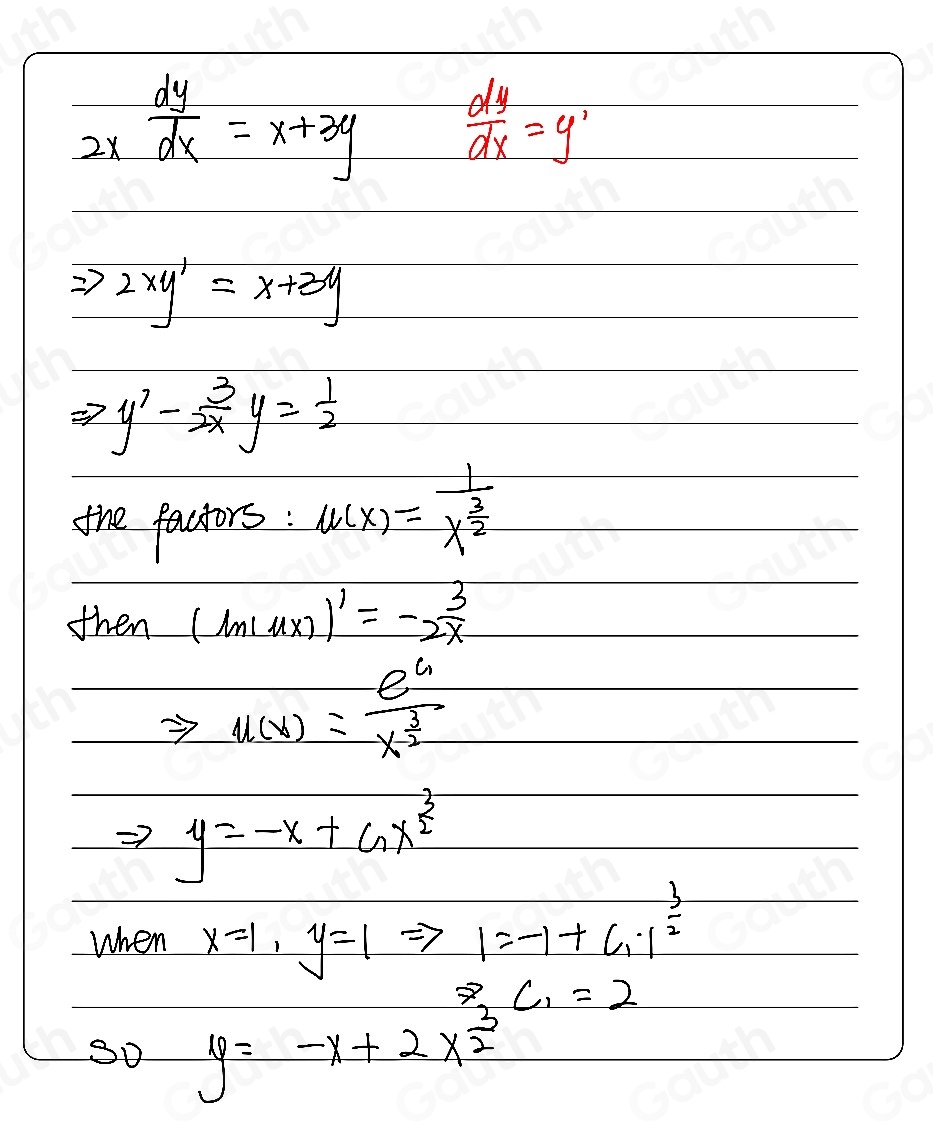 2x dy/dx = x+3y    dy/dx = y'
⇒ 2xy' = x+3y
⇒ y' - 3/2x y = 1/2
the factors : u(x) = 1/x^(3/2)
then (ln(ux))' = -3/2x
⇒ u(x) = e^(C₁)/x^(3/2)
⇒ y = -x + C₁x^(3/2)
when x=1, y=1 ⇒ 1=-1+C₁·1^(3/2)
⇒ C₁ = 2
so y = -x + 2x^(3/2)
Gauth